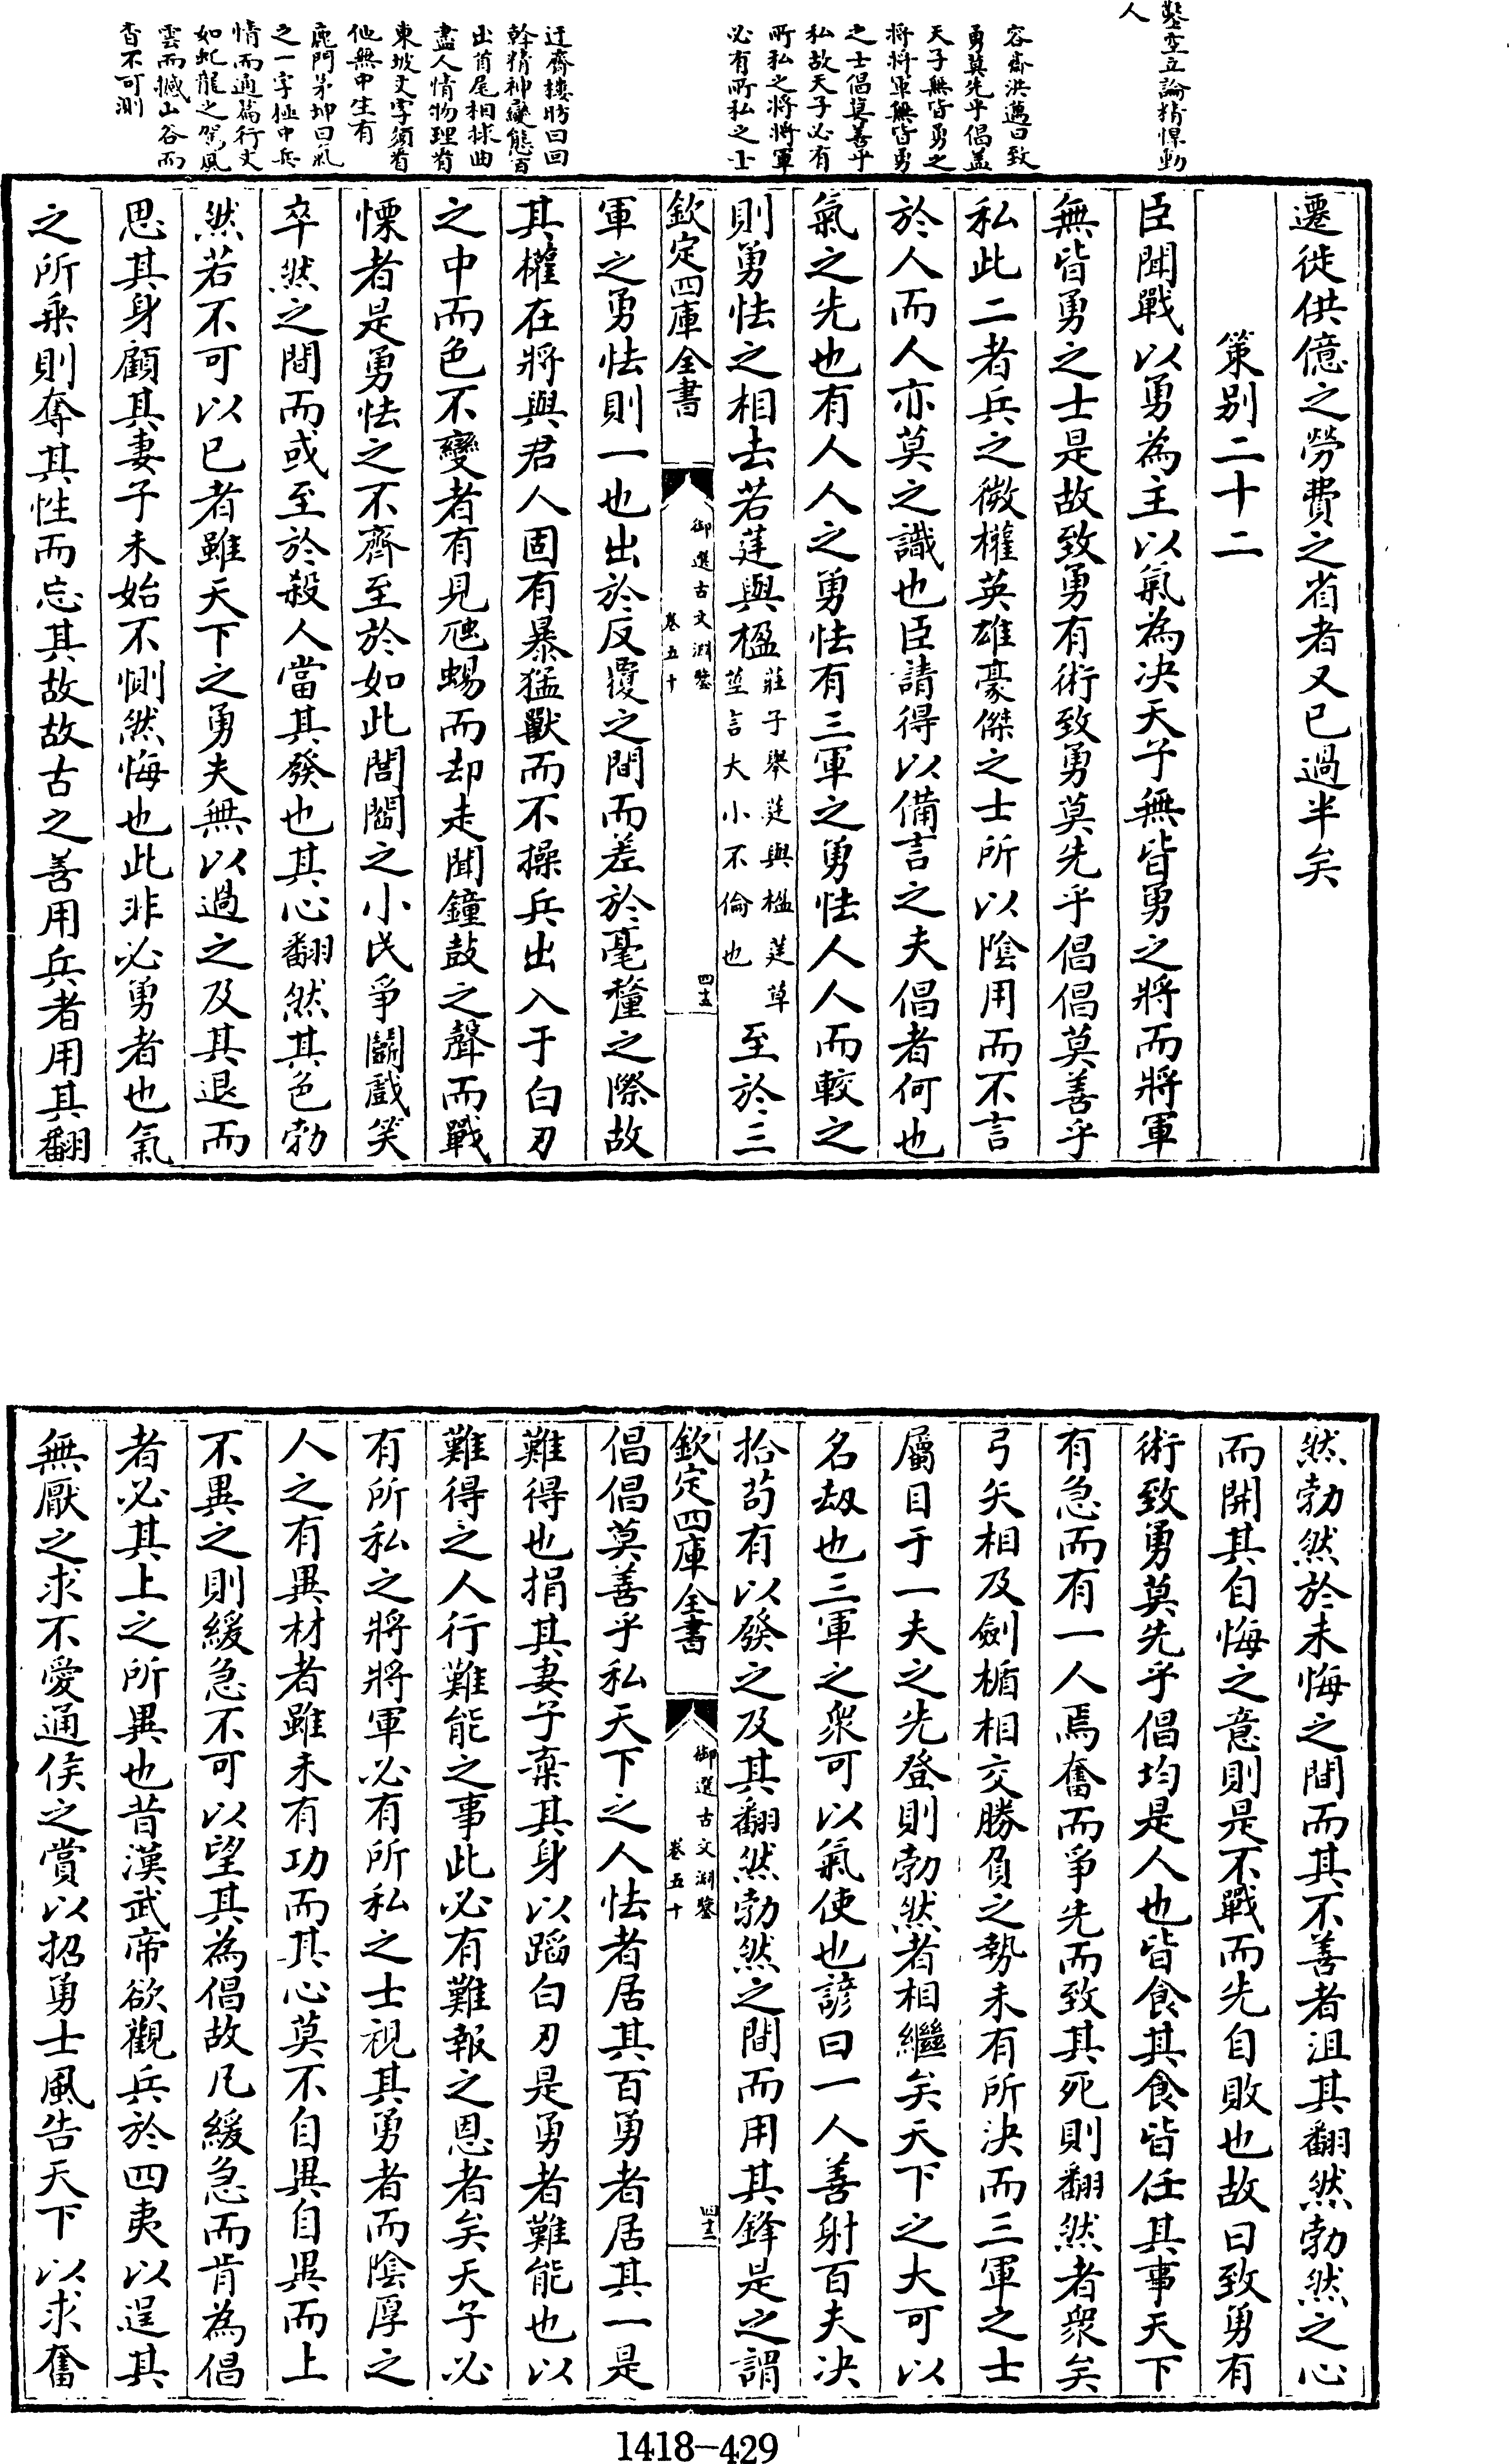 鑿空立論精悍動
人
容齋洪邁曰致
勇莫先乎倡蓋
天子無皆勇之
將將軍無皆勇
之士倡莫善乎
私故天子必有
所私之將將軍
必有所私之士
迂齋樓昉曰回
斡精神變態百
出首尾相捄曲
盡人情物理背
東坡文字須看
他無中生有
鹿門茅坤曰氣
之一字極中兵
情而通篇行文
如虬龍之駕風
雲而撼山谷而
杳不可測
遷徙供億之勞費之省者又已過半矣
策别二十二
臣聞戰以勇為主以氣為决天子無皆勇之將而將軍
無皆勇之士是故致勇有術致勇莫先乎倡倡莫善乎
私此二者兵之微權英雄豪傑之士所以陰用而不言
於人而人亦莫之識也臣請得以備言之夫倡者何也
氣之先也有人人之勇怯有三軍之勇怯人人而較之
則勇怯之相去若莛與楹莊子舉莛與楹莛草莖言大小不倫也至於三
欽定四庫全書
御選古文淵鑒
卷五十
軍之勇怯則一也出於反覆之間而差於毫釐之際故
其權在將與君人固有暴猛獸而不操兵出入于白刃
之中而色不變者有見虺蜴而却走聞鐘鼓之聲而戰
慄者是勇怯之不齊至於如此閭閻之小民爭鬭戲笑
卒然之間而或至於殺人當其發也其心翻然其色勃
然若不可以已者雖天下之勇夫無以過之及其退而
思其身顧其妻子未始不惻然悔也此非必勇者也氣
之所乗則奪其性而忘其故故古之善用兵者用其翻
然勃然於未悔之間而其不善者沮其翻然勃然之心
而開其自悔之意則是不戰而先自敗也故曰致勇有
術致勇莫先乎倡均是人也皆食其食皆任其事天下
有急而有一人焉奮而爭先而致其死則翻然者衆矣
弓矢相及劍楯相交勝負之勢未有所決而三軍之士
屬目于一夫之先登則勃然者相繼矣天下之大可以
名刼也三軍之衆可以氣使也諺曰一人善射百夫决
拾茍有以發之及其翻然勃然之間而用其鋒是之謂
欽定四庫全書
御選古文淵鑒
卷五十
倡倡莫善乎私天下之人怯者居其百勇者居其一是
難得也捐其妻子棄其身以蹈白刃是勇者難能也以
難得之人行難能之事此必有難報之恩者矣天子必
有所私之將將軍必有所私之士視其勇者而陰厚之
人之有異材者雖未有功而其心莫不自異自異而上
不異之則緩急不可以望其為倡故凡緩急而肯為倡
者必其上之所異也昔漢武帝欲觀兵於四夷以逞其
無厭之求不愛通侯之賞以招勇士風告天下以求奮
1418-429